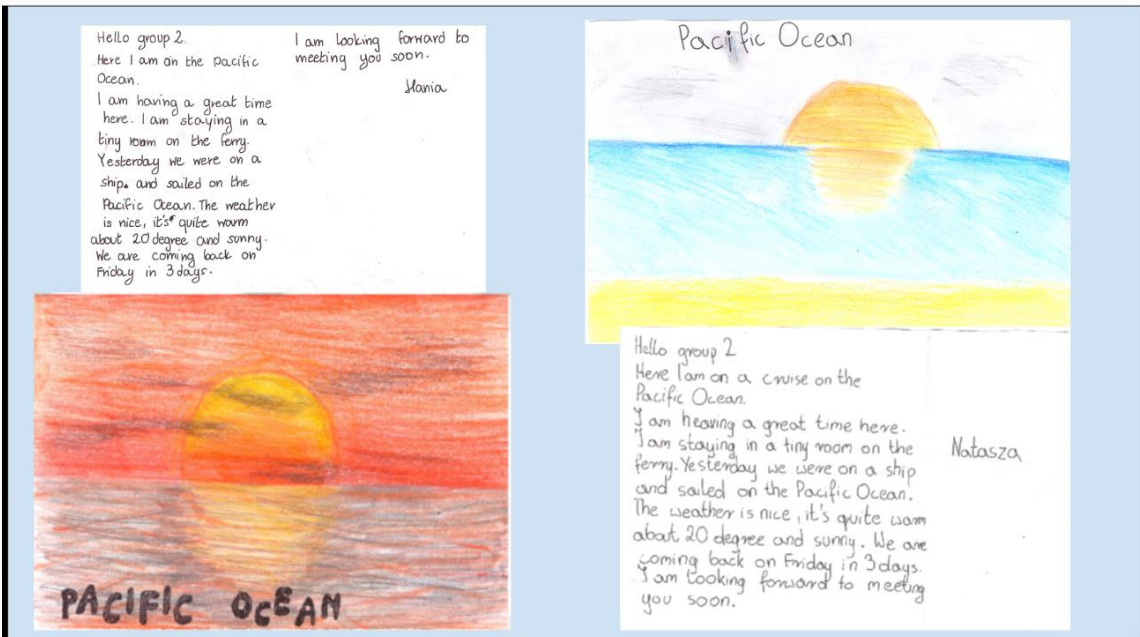 Hello group 2.
Here I am on the Pacific
Ocean.
I am having a great time
here. I am staying in a
tiny room on the ferry.
Yesterday we were on a
ship. and sailed on the
Pacific Ocean. The weather
is nice, it's quite warm
about 20 degree and sunny.
We are coming back on
Friday in 3 days.
I am looking forward to
meeting you soon.
Hania
PACIFIC OCEAN
Pacific Ocean
Hello group 2
Here I am on a cruise on the
Pacific Ocean.
I am heaving a great time here.
I am staying in a tiny room on the
ferry. Yesterday we were on a ship
and sailed on the Pacific Ocean.
The weather is nice, it's quite warm
about 20 degree and sunny. We are
coming back on Friday in 3 days.
I am looking forward to meeting
you soon.
Natasza